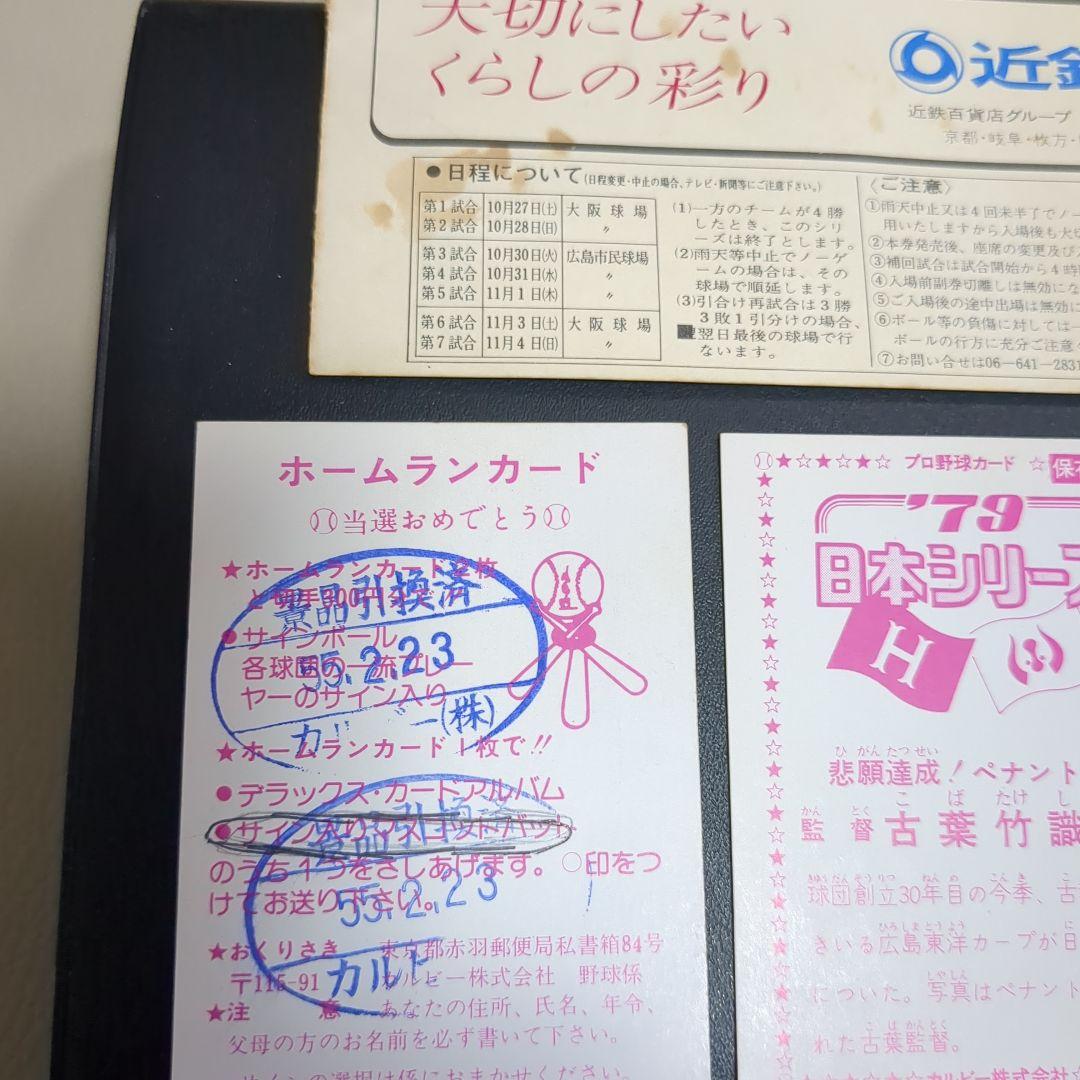 大切にしたい
くらしの彩り
近鉄
近鉄百貨店グループ
京都・岐阜・枚方・
●日程について(日程変更・中止の場合、テレビ・新聞等にご注意下さい。)
第1試合 10月27日(土) 大阪球場
第2試合 10月28日(日) 〃
第3試合 10月30日(火) 広島市民球場
第4試合 10月31日(水) 〃
第5試合 11月1日(木) 〃
第6試合 11月3日(土) 大阪球場
第7試合 11月4日(日) 〃
(1)一方のチームが4勝
したとき、このシリ
ーズは終了とします。
(2)雨天等中止でノーゲ
ームの場合は、その
球場で順延します。
(3)引分け再試合は3勝
3敗1引分けの場合、
翌日最後の球場で行
ないます。
〈ご注意〉
①雨天中止又は4回末半了でノー
用いたしますから入場後も大切
②本券発売後、座席の変更及び
③補回試合は試合開始から4時
④入場前副券切離しは無効にな
⑤ご入場後の途中出場は無効に
⑥ボール等の負傷に対しては一
ボールの行方に充分ご注意く
⑦お問い合せは06-641-2831
ホームランカード
当選おめでとう
★ホームランカード2枚
と切手300円分で!!
●サインボール
各球団の一流プレー
ヤーのサイン入り
景品引換済
55.2.23
カルビー(株)
★ホームランカード1枚で!!
●デラックス・カードアルバム
●サイン入りマスコットバット
のうち1つをさしあげます。○印をつ
けてお送り下さい。
景品引換済
55.2.23
カルビ
★おくりさき 東京都赤羽郵便局私書箱84号
〒115-91 カルビー株式会社 野球係
★注 意 あなたの住所、氏名、年令、
父母の方のお名前を必ず書いて下さい。
サインの選択は係におまかせください。
☆★☆★☆★☆ プロ野球カード ☆ 保存
'79
日本シリーズ
H
悲願達成!ペナント
ひがんたつせい
監督 古葉竹識
かん とく こ ば たけ し
球団創立30年目の今季、古
きゅうだんそうりつ ねんめ こんき こ
きいる広島東洋カープが日
ひろしまとうよう
についた。写真はペナント
しゃしん
れた古葉監督。
こ ば かんとく
カルビー株式会社